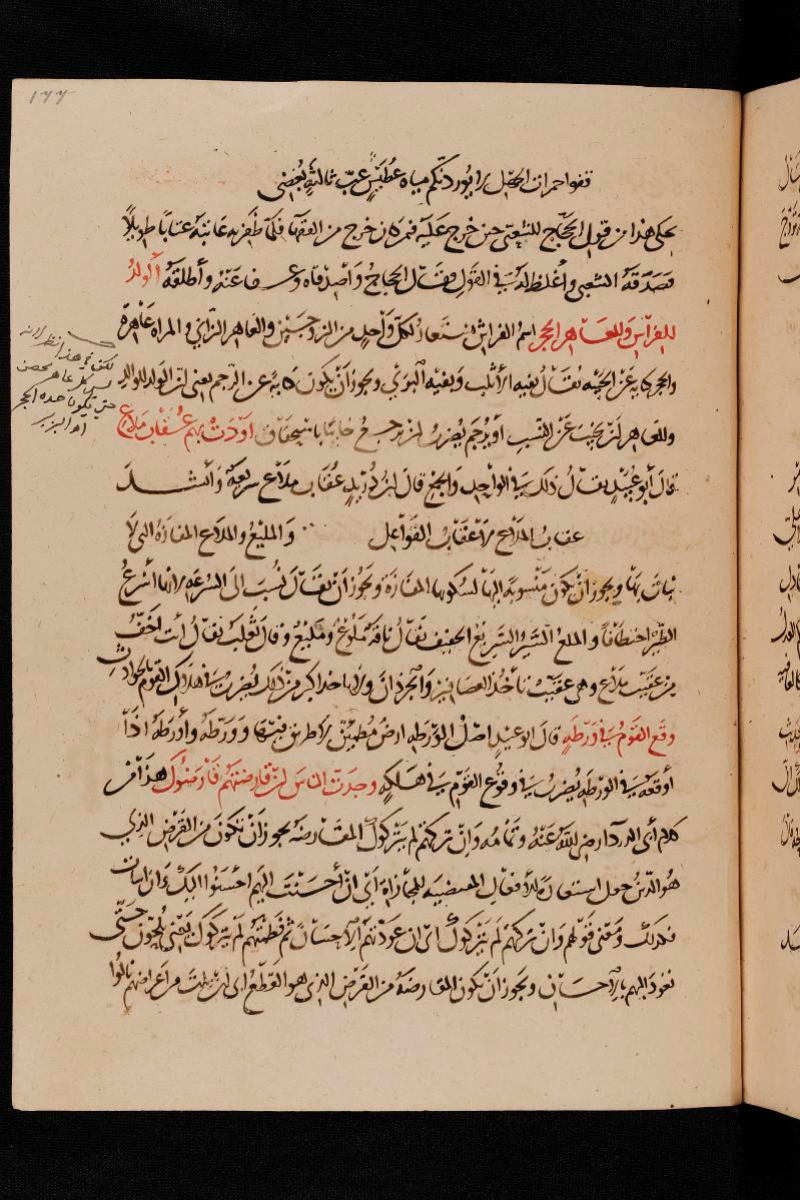 ١٢٢
يحكى هذا من قول الحجاج للشعبي حين خرج عليه فيمن خرج من الفقها فلما ظفر به عاتبه عتابًا طويلًا
فصدقه الشعبي وأغلظ له في القول فقال الحجاج وأصدقاه وعفا عنه وأطلقه الولد
للفراش وللعاهر الحجر اسم الفراش يستعار لكل واحد من الزوجين والعاهر الزاني والمراة عاهرة
والحجر كناية عن الخيبة يقال بفيه الأثلب وبفيه البرى ويجوز أن يكون كناية عن الرجم يعني أن الولد للوالد
وللعاهر أن يخيب عن النسب أو يرجم يضرب لمن يرجع خائبًا باستحقاق أودت بهم عقاب ملاع
قال أبو عبيد يقال ذلك في الواحد والجمع قال ابن دريد عقاب ملاع سريعة وأنشد
عقاب الملاع لا عقاب القواعل والمليع والملاع المفازة التي لا
نبات بها ويجوز أن تكون منسوبة إليها لسكونها المفازة ويجوز أن يقال نسبت الى السرعة لانها أسرع
الطير اختطافًا والملع السير السريع الخفيف يقال ناقة ملوع ومليع وقال ثعلب يقال أنت أخف
من عقيب ملاع وهي عقيب تأخذ العصافير والجرذان ولا تاخذ اكبر من ذلك يضرب في هلاك القوم بالحوادث
وقع القوم في ورطة قال ابو عبيد اصل الورطة ارض مطمئنة لا طريق فيها وورطه وأورطه اذا
أوقعه في الورطة يضرب في وقوع القوم في هلكة وجدت الناس إن قارضتهم قارضوك هذا من
كلام أبي الدرداء رضي الله عنه وتمامه وإن تركتهم لم يتركوك المقارضة يجوز أن تكون من القرض الذي
هو الدين جعل استعارة للأفعال المقتضية للمجازاة أي ان أحسنت إليهم احسنوا اليك وان اسأت
فكذلك ومعنى قولهم وإن تركتهم لم يتركوك أي ان عودتهم الاحسان ثم فطمتهم لم يتركوك يعني يلحون حتى
تعود إليهم بالاحسان ويجوز أن تكون المقارضة من القرض الذي هو القطع اي إن نلت من اعراضهم نالوا